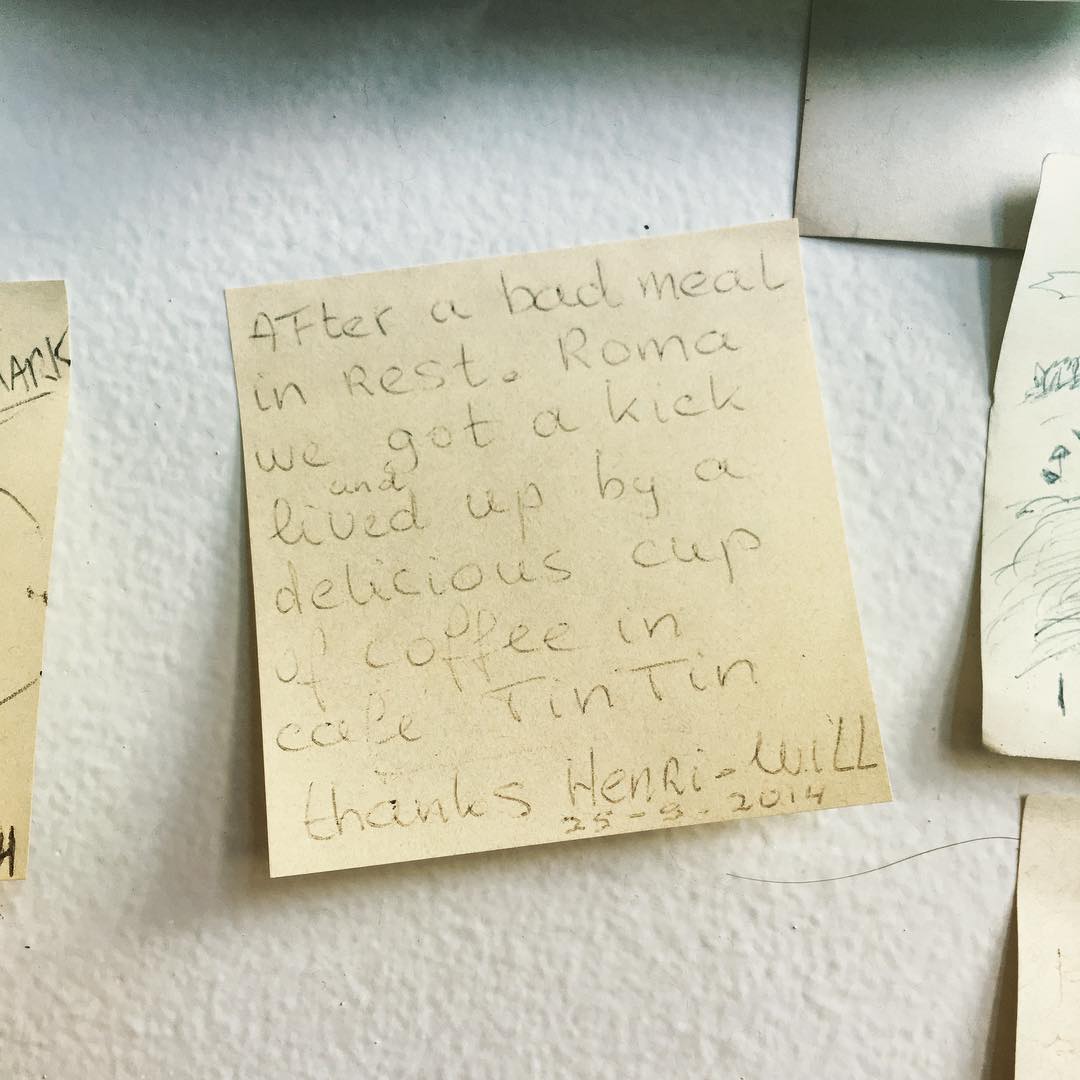 ARK
AFter a bad meal
in Rest. Roma
we got a kick
and
lived up by a
delicious cup
of coffee in
cafe TinTin
thanks Henri-Will
25-9-2014